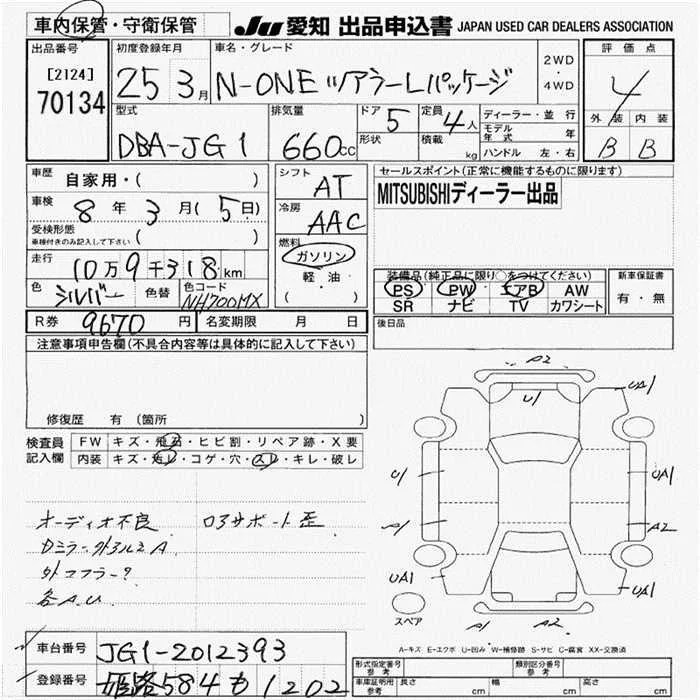 車内保管・守衛保管 JU 愛知 出品申込書 JAPAN USED CAR DEALERS ASSOCIATION
出品番号 初度登録年月 車名・グレード 2WD ・ 4WD 評価点
[2124] 70134 25 3月 N-ONE ツアラーLパッケージ 4
型式 排気量 ドア 5 定員 4人 ディーラー・並行 外装 内装
DBA-JG1 660cc 形状 積載 kg モデル年式 年 B B
ハンドル 左・右
車歴 自家用・( ) シフト AT セールスポイント(正常に機能するものに限ります)
車検 8年 3月(5日) 冷房 AAC MITSUBISHIディーラー出品
受検形態 車検付きのみ記入して下さい ( ) 燃料 ガソリン 軽・油 ( )
走行 10万9千318km 装備品(純正品に限り○をつけてください) 新車保証書
色 シルバー 色替 色コード NH700MX PS PW エアB AW 有・無
SR ナビ TV カワシート
R券 9670円 名変期限 月 日 後日品
注意事項申告欄(不具合内容等は具体的に記入して下さい)
修復歴 有 (箇所 )
検査員記入欄 FW キズ・飛石・ヒビ割・リペア跡・X要
内装 キズ・汚レ・コゲ・穴・スレ・キレ・破レ
A2
U1 UA1
U1 UA1
A1 A2
UA1 UA1
A1 A2
スペア
オーディオ不良 ロアサポート歪
Dミラー外アルミA
外マフラー?
各A.U.
A-キズ E-エクボ U-凹み W-補修跡 S-サビ C-腐食 XX-交換済
車台番号 JG1-2012393
登録番号 姫路584も1202
形式指定番号 参考 類別区分番号 参考
車庫証明用 参考 長さ cm 幅 cm 高さ cm